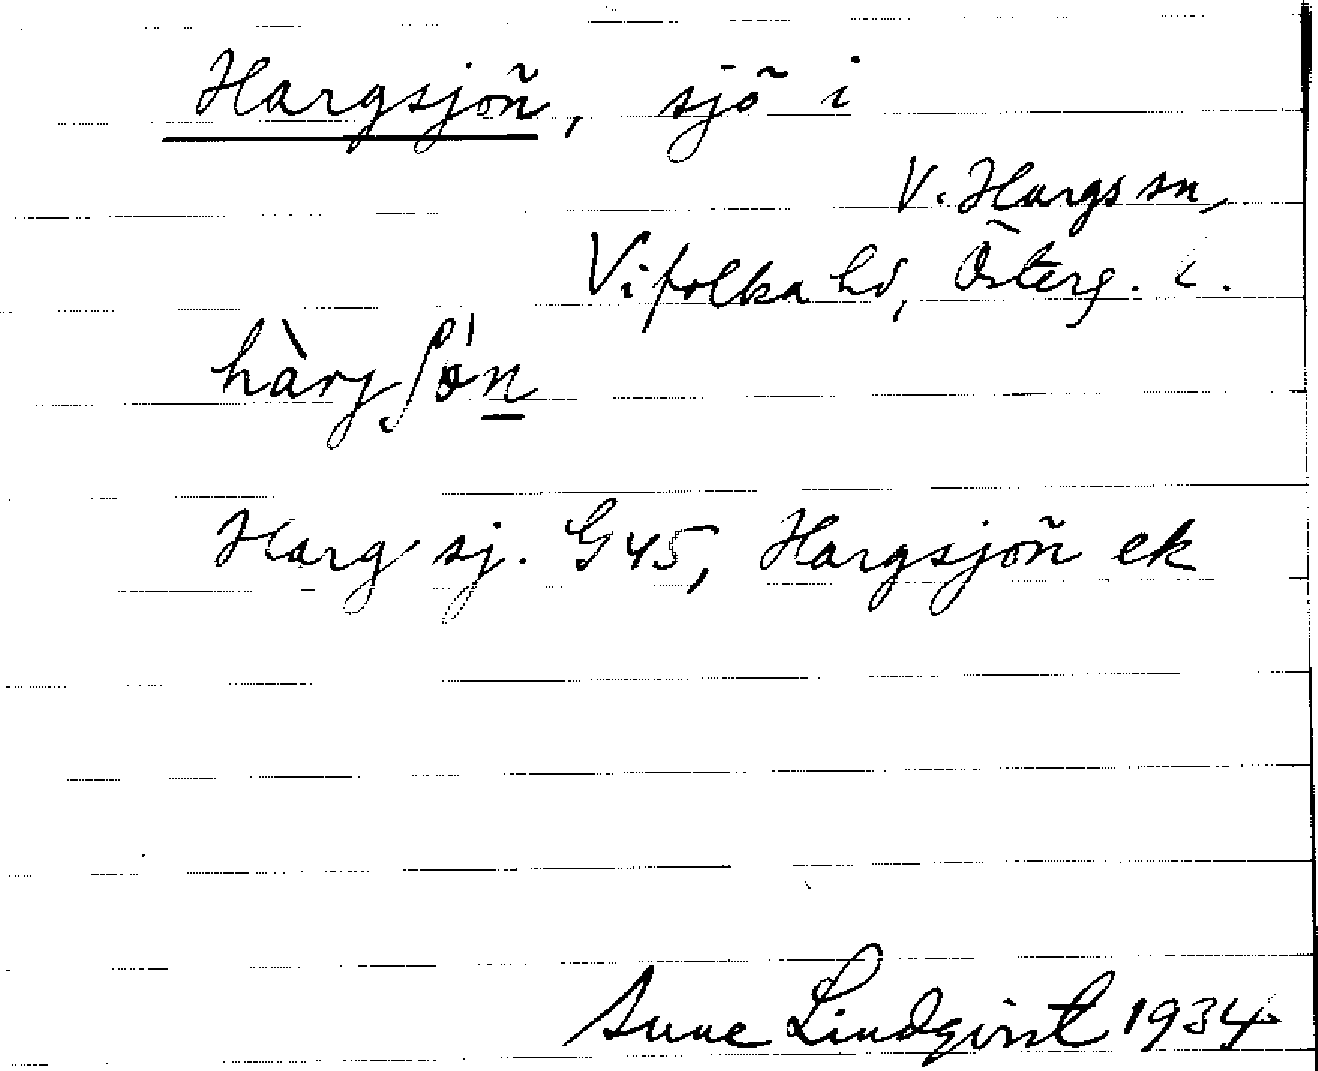 Hargsjön, sjö i
V. Hargs sn,
Vifolka hd, Österg. l.
hàrjʃón
Harg sj. G45, Hargsjön ek
Sune Lindqvist 1934